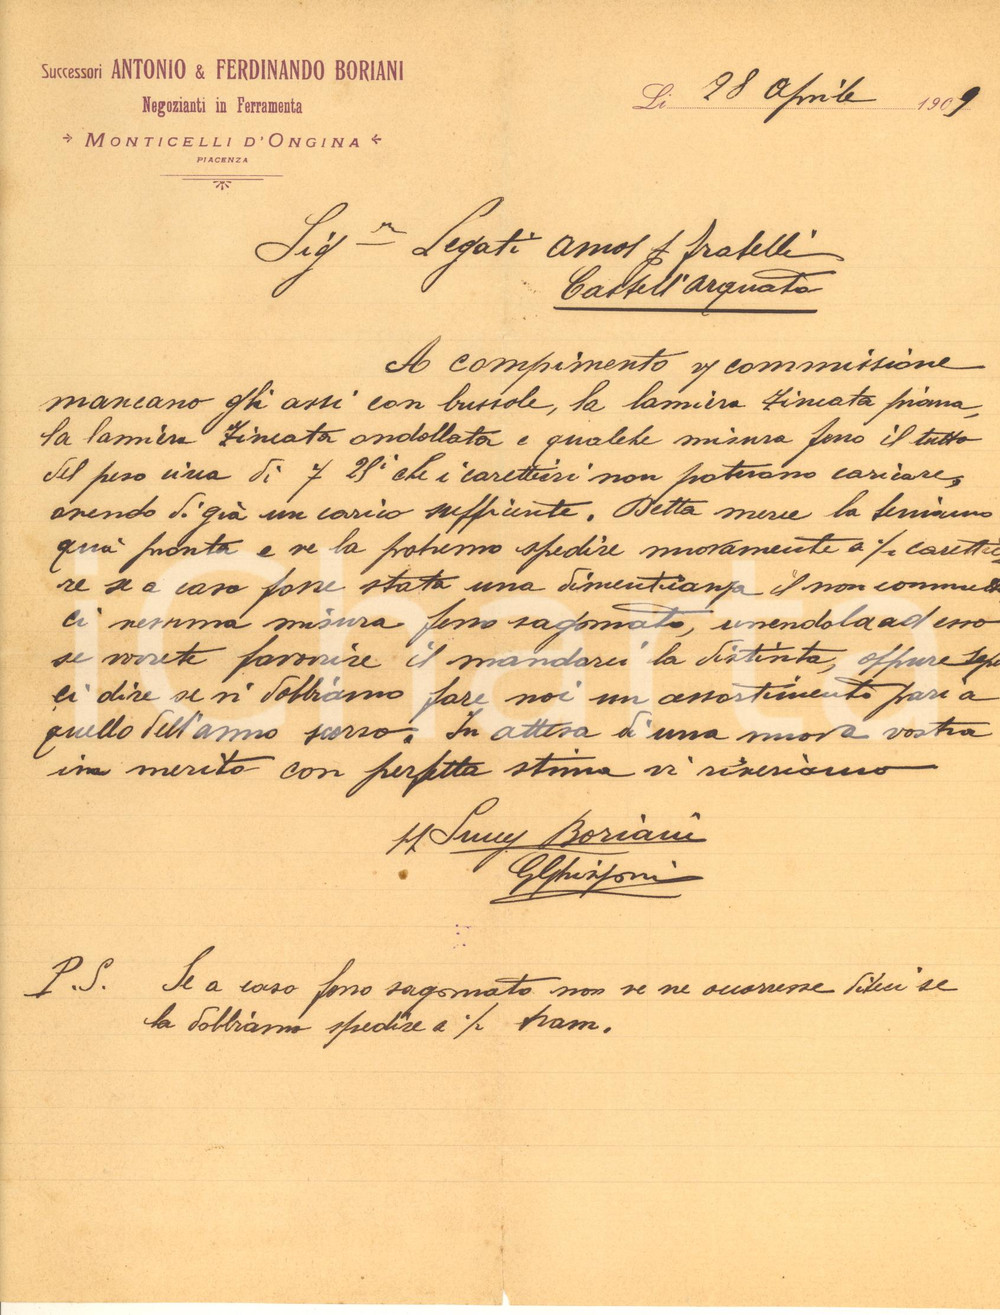 Successori ANTONIO & FERDINANDO BORIANI
Negozianti in Ferramenta
MONTICELLI D'ONGINA
PIACENZA
Li 28 Aprile 1909
Sig.r Legati Amos f fratelli
Castell'Arquato
A compimento v/ commissione
mancano gli assi con bussole, la lamiera zincata piana,
la lamiera zincata ondollata e qualche misura ferro il tutto
del peso circa di 7 Qli che i carettieri non poterano caricare,
avendo di già un carico sufficente. Detta merce la teniamo
quà pronta e ve la potremo spedire nuovamente a ½ carettie
re se a caso fosse stata una dimenticanza il non comme
ci nessuna misura ferro sagomato, unendola ad esso
se vorrete favorire il mandarci la distinta, oppure
ci dire se vi dobbiamo fare noi un assortimento pari a
quello dell'anno scorso. In attesa di una nuova vostra
in merito con perfetta stima vi riveriamo
Succ Boriani
GGhisoni
P.S. Se a caso ferro sagomato non ve ne ocorresse diteci se
la dobbiamo spedire a ½ tram.
iCharta